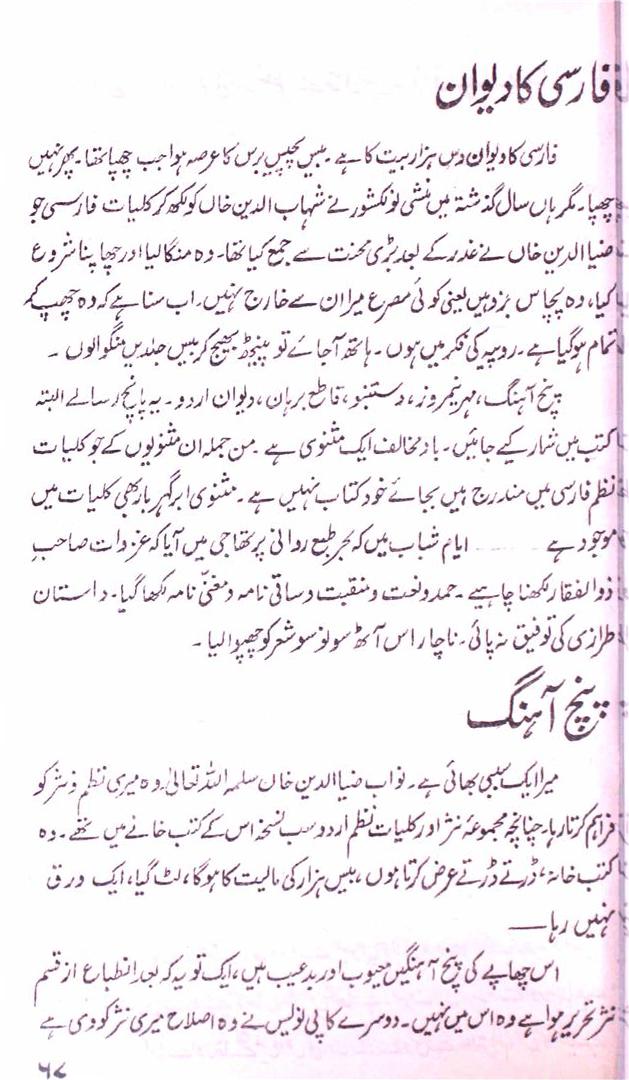 فارسی کا دیوان
فارسی کا دیوان دس ہزار بیت کا ہے ۔ بیس پچیس برس کا عرصہ ہوا جب چھپا تھا ۔ پھر نہیں
چھپا ۔ مگر ہاں سال گذشتہ میں منشی نولکشور نے شہاب الدین خاں کو لکھ کر کلیات فارسی جو
ضیا الدین خاں نے غدر کے بعد بڑی محنت سے جمع کیا تھا ۔ وہ منگا لیا اور چھاپنا شروع
کیا، وہ پچاس جزو ہیں یعنی کوئی مصرع میرا ان سے خارج نہیں ۔ اب سنا ہے کہ وہ چھپ کر
تمام ہو گیا ہے ۔ روپیہ کی فکر میں ہوں ۔ ہاتھ آ جائے تو بھیج کر بیس جلدیں منگوالوں ۔
پنج آہنگ، مہر نیمروز، دستنبو، قاطع برہان، دیوان اردو ۔ یہ پانچ رسالے البتہ
کتب میں شمار کیے جائیں ۔ باد مخالف ایک مثنوی ہے ۔ من جملہ ان مثنویوں کے جو کلیات
نظم فارسی میں مندرج ہیں بجائے خود کتاب نہیں ہے ۔ مثنوی ابر گہر بار بھی کلیات میں
موجود ہے ـــــ ایام شباب میں کہ بحر طبع روانی پر تھا جی میں آیا کہ غزوات صاحبِ
ذوالفقار لکھنا چاہیے ۔ حمد و نعت و منقبت و ساقی نامہ و مغنّی نامہ لکھا گیا ۔ داستان
طرازی کی توفیق نہ پائی ۔ ناچار اس آٹھ سو نو سو شعر کو چھپوا لیا ۔
پنج آہنگ
میرا ایک سببی بھائی ہے ۔ نواب ضیا الدین خاں سلمہ اللہ تعالیٰ وہ میری نظم و نثر کو
فراہم کرتا رہا ۔ چنانچہ مجموعۂ نثر اور کلیات نظم اردو سب نسخہ اس کے کتب خانے میں تھے ۔ وہ
کتب خانہ، ڈرتے ڈرتے عرض کرتا ہوں، بیس ہزار کی مالیت کا ہوگا، لٹ گیا، ایک ورق
نہیں رہا ـــ
اس چھاپے کی پنج آہنگیں معیوب اور بدعیب ہیں، ایک تو یہ کہ بعد انطباع از قسم
نثر تحریر ہوا ہے وہ اس میں نہیں ۔ دوسرے کاپی نویس نے وہ اصلاح میری نثر کو دی ہے
۶۷